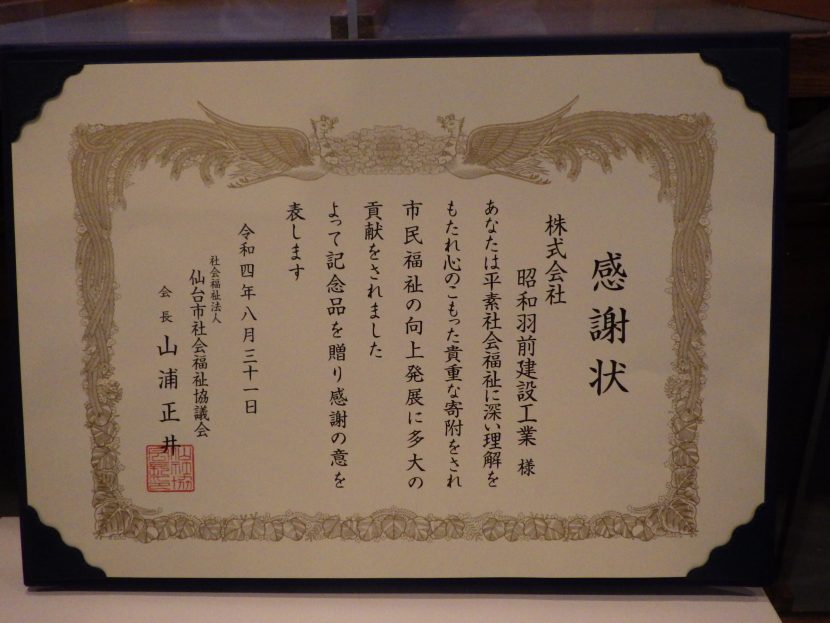 感謝状
株式会社
昭和羽前建設工業 様
あなたは平素社会福祉に深い理解を
もたれ心のこもった貴重な寄附をされ
市民福祉の向上発展に多大の
貢献をされました
よって記念品を贈り感謝の意を
表します
令和四年八月三十一日
社会福祉法人
仙台市社会福祉協議会
会長 山浦正井